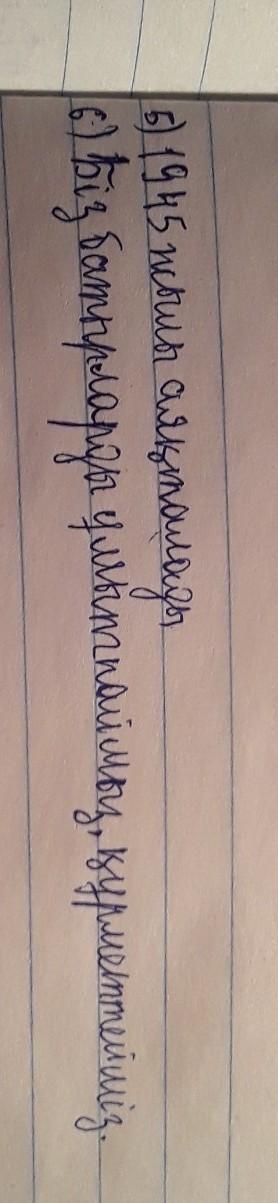 5) 1945 жылы аяқталады
6) Біз батырларды ұмытпаймыз, құрметтейміз.